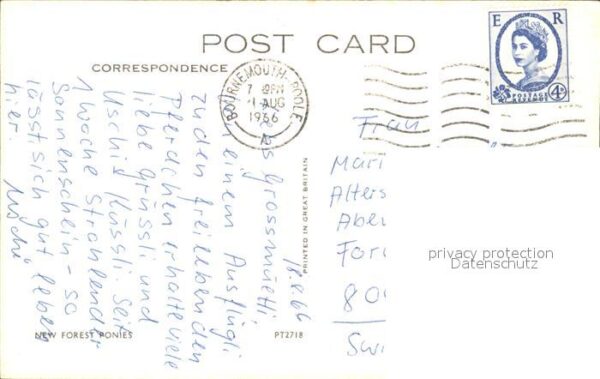 POST CARD
CORRESPONDENCE
E R
POSTAGE
REVENUE
4D
BOURNEMOUTH-POOLE
7 PM
1 AUG
1966
A
1.8.66
s Grossmüetti
einem Ausflügli
zu den freilebenden
Pferdchen erhalte viele
liebe Grüssli und
Küssli. Seit
1 Woche strahlender
Sonnenschein - so
lässt sich gut leben
hier.
PRINTED IN GREAT BRITAIN
Frau
Mari
Alters
Aber
For
80
Swi
privacy protection
Datenschutz
NEW FOREST PONIES
PT2718